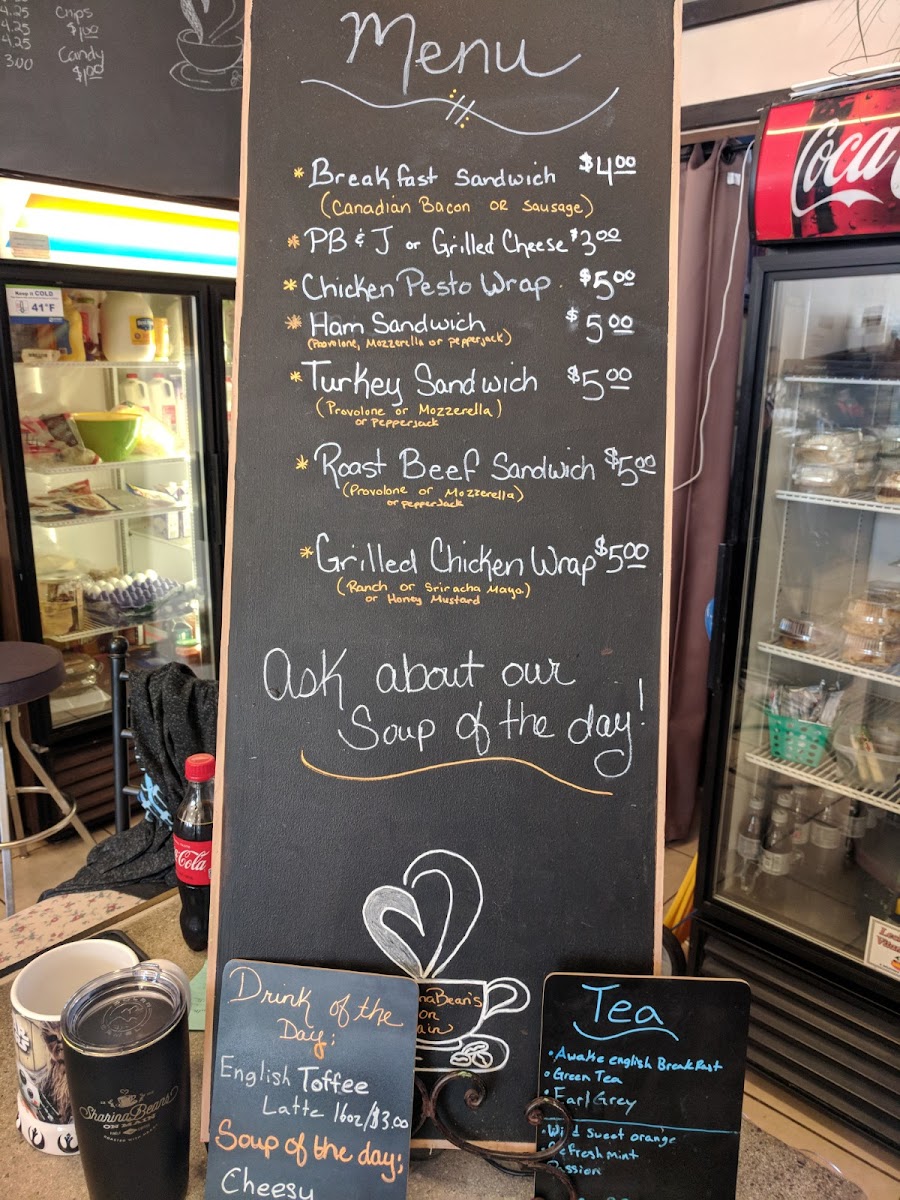 4.25
4.25
4.25
3.00
Chips
$1.00
Candy
$1.00
Menu
* Breakfast Sandwich $4.00
(Canadian Bacon OR Sausage)
* PB & J or Grilled Cheese $3.00
* Chicken Pesto Wrap. $5.00
* Ham Sandwich $5.00
(Provolone, Mozzerella or pepperjack)
* Turkey Sandwich $5.00
(Provolone or Mozzerella)
or Pepperjack
* Roast Beef Sandwich $5.00
(Provolone or Mozzerella)
or pepperjack
* Grilled Chicken Wrap $5.00
(Ranch or Sriracha Mayo)
or Honey Mustard
Ask about our
Soup of the day!
naBean's
on
ain
Drink of the
Day:
English Toffee
Latte 16oz/$3.00
Soup of the day:
Cheesy
Tea
• Awake english Breakfast
• Green Tea
• Earl Grey
• Wild Sweet orange
Refresh mint
Passion
Keep it COLD
41°F
Coca
Coca-Cola
SharinaBeans
ON MAIN